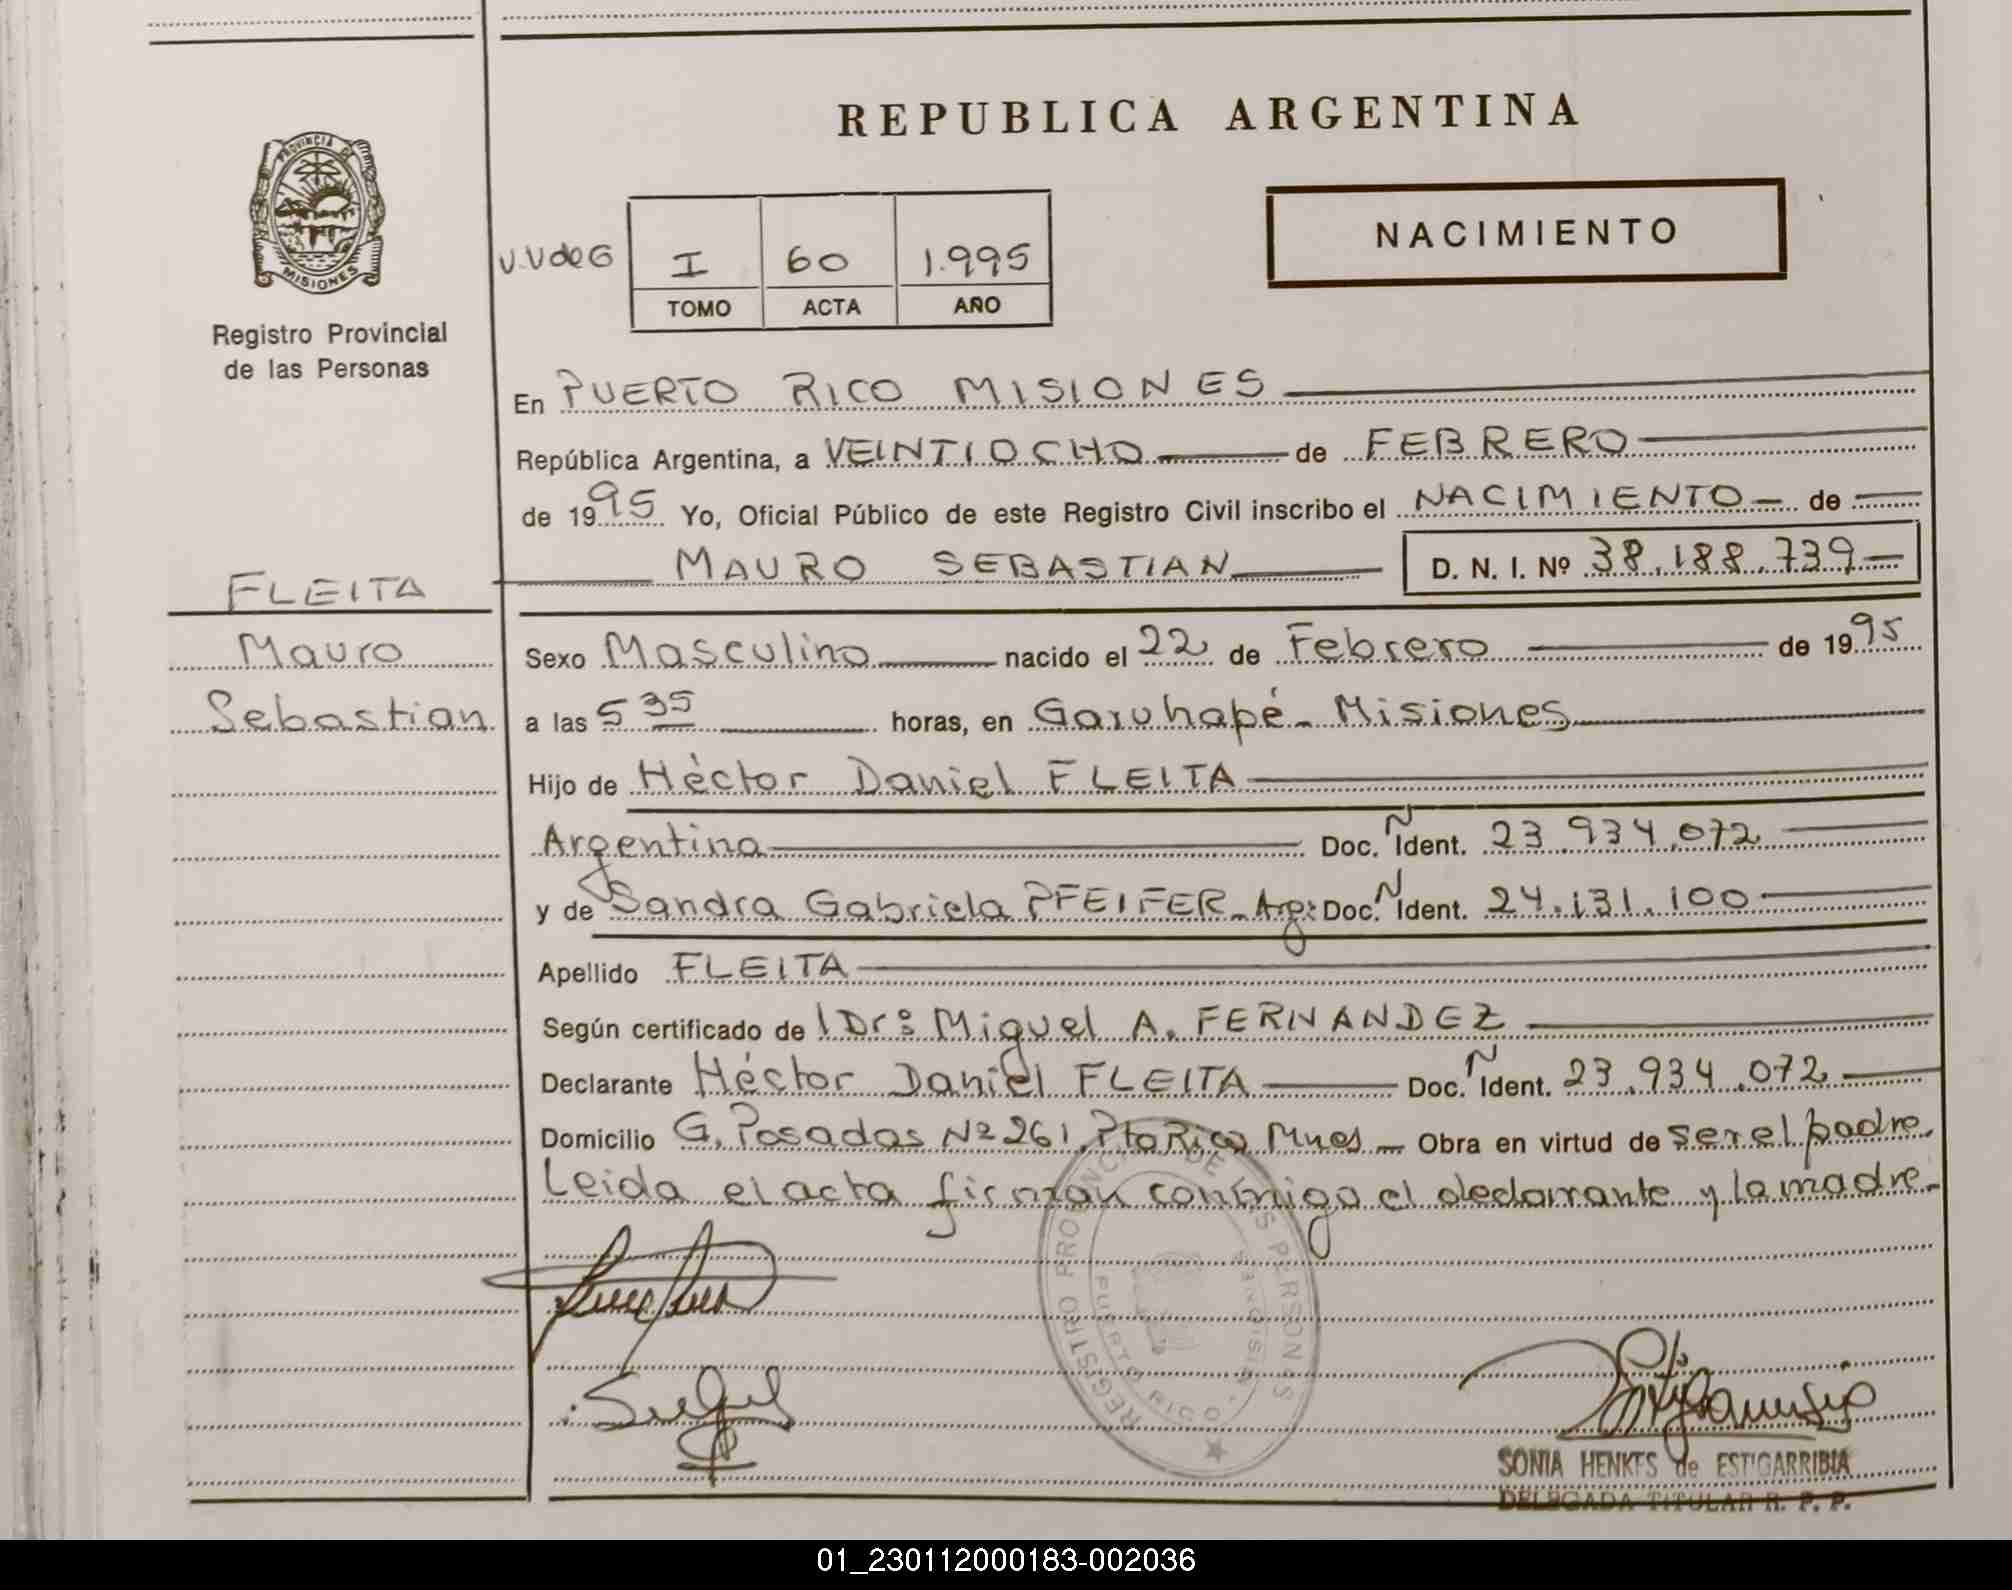 REPUBLICA ARGENTINA
PROVINCIA DE
MISIONES
Registro Provincial
de las Personas
NACIMIENTO
V.VdeG I 60 1.995
TOMO ACTA AÑO
En PUERTO RICO MISIONES
República Argentina, a VEINTIOCHO de FEBRERO
de 1995 Yo, Oficial Público de este Registro Civil inscribo el NACIMIENTO de
MAURO SEBASTIAN D. N. I. Nº 38.188.739
FLEITA
Mauro
Sebastian
Sexo Masculino nacido el 22 de Febrero de 1995
a las 5 35 horas, en Garuhapé - Misiones
Hijo de Héctor Daniel FLEITA
Argentina Doc. N Ident. 23.934.072
y de Sandra Gabriela PFEIFER - Arg: Doc. N Ident. 24.131.100
Apellido FLEITA
Según certificado de l Dr: Miguel A. FERNANDEZ
Declarante Héctor Daniel FLEITA Doc. N Ident. 23.934.072
Domicilio G. Posadas Nº 261. Pto Rico Mnes - Obra en virtud de ser el padre.
Leida el acta firman conmigo el declarante y la madre -
REGISTRO PROVINCIAL DE LAS PERSONAS
PUERTO RICO - MISIONES
SONIA HENKES de ESTIGARRIBIA
DELEGADA TITULAR R. P. P.
01_230112000183-002036